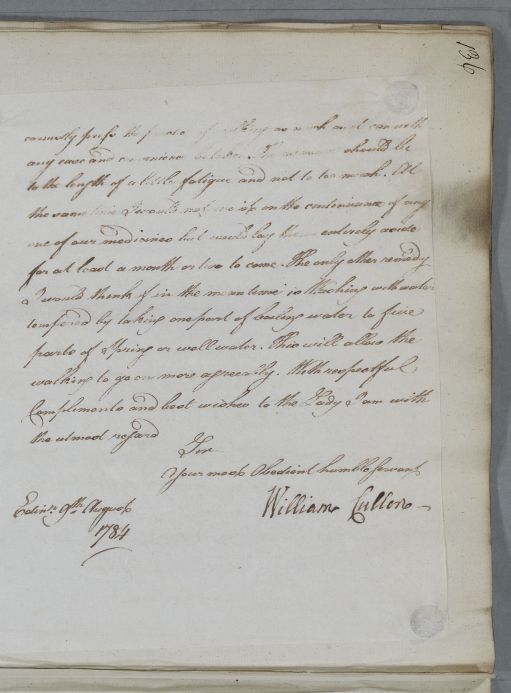 136
earnestly press the practice of walking as much and can with
any ease and convenience be taken. The measure should be
to the length of a little fatigue and not to too much. At
the same time I would not insist on the continuance of any
one of our medicines but would lay them entirely aside
for at least a month or two to come. The only other remedy
I would think of in the mean time is Washing with water
tempered by taking one part of boiling water to five
parts of Spring or well water. This will allow the
walking to go on more agreeably. With respectful
Compliments and best wishes to the Lady I am with
the utmost regard
Sir
Your most Obedient humble servant
William Cullen
Edinr. 9th. August
1784